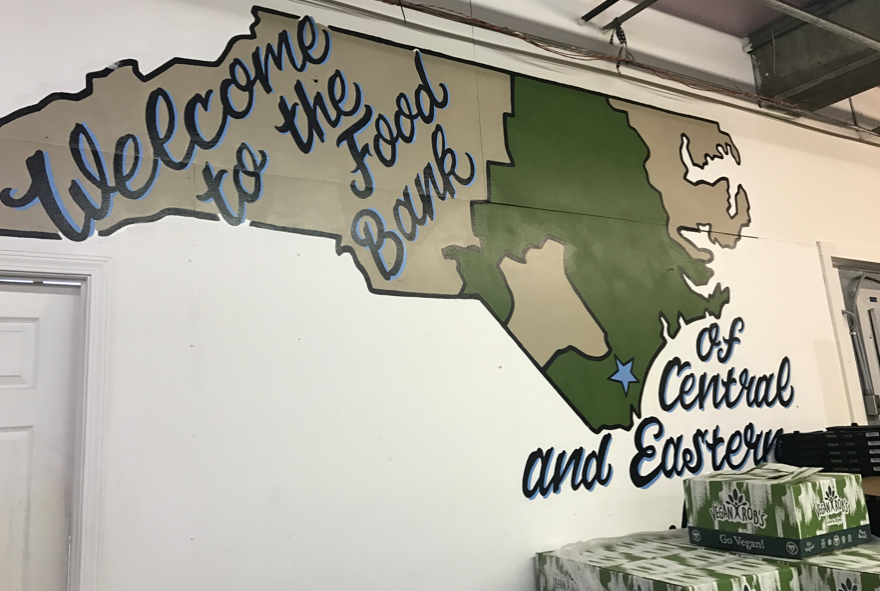 Welcome
to the
Food
Bank
of
Central
and Eastern
VEGAN ROB'S
VEGAN ROB'S
Go Vegan!